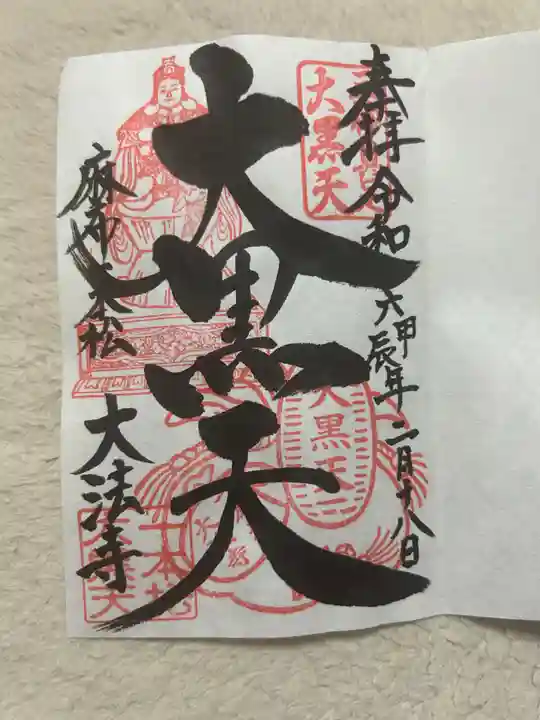 奉拝 令和六甲辰年二月十八日
大黒天
大黒天
大黒天
麻布一本松 大法寺
一本松
大黒天